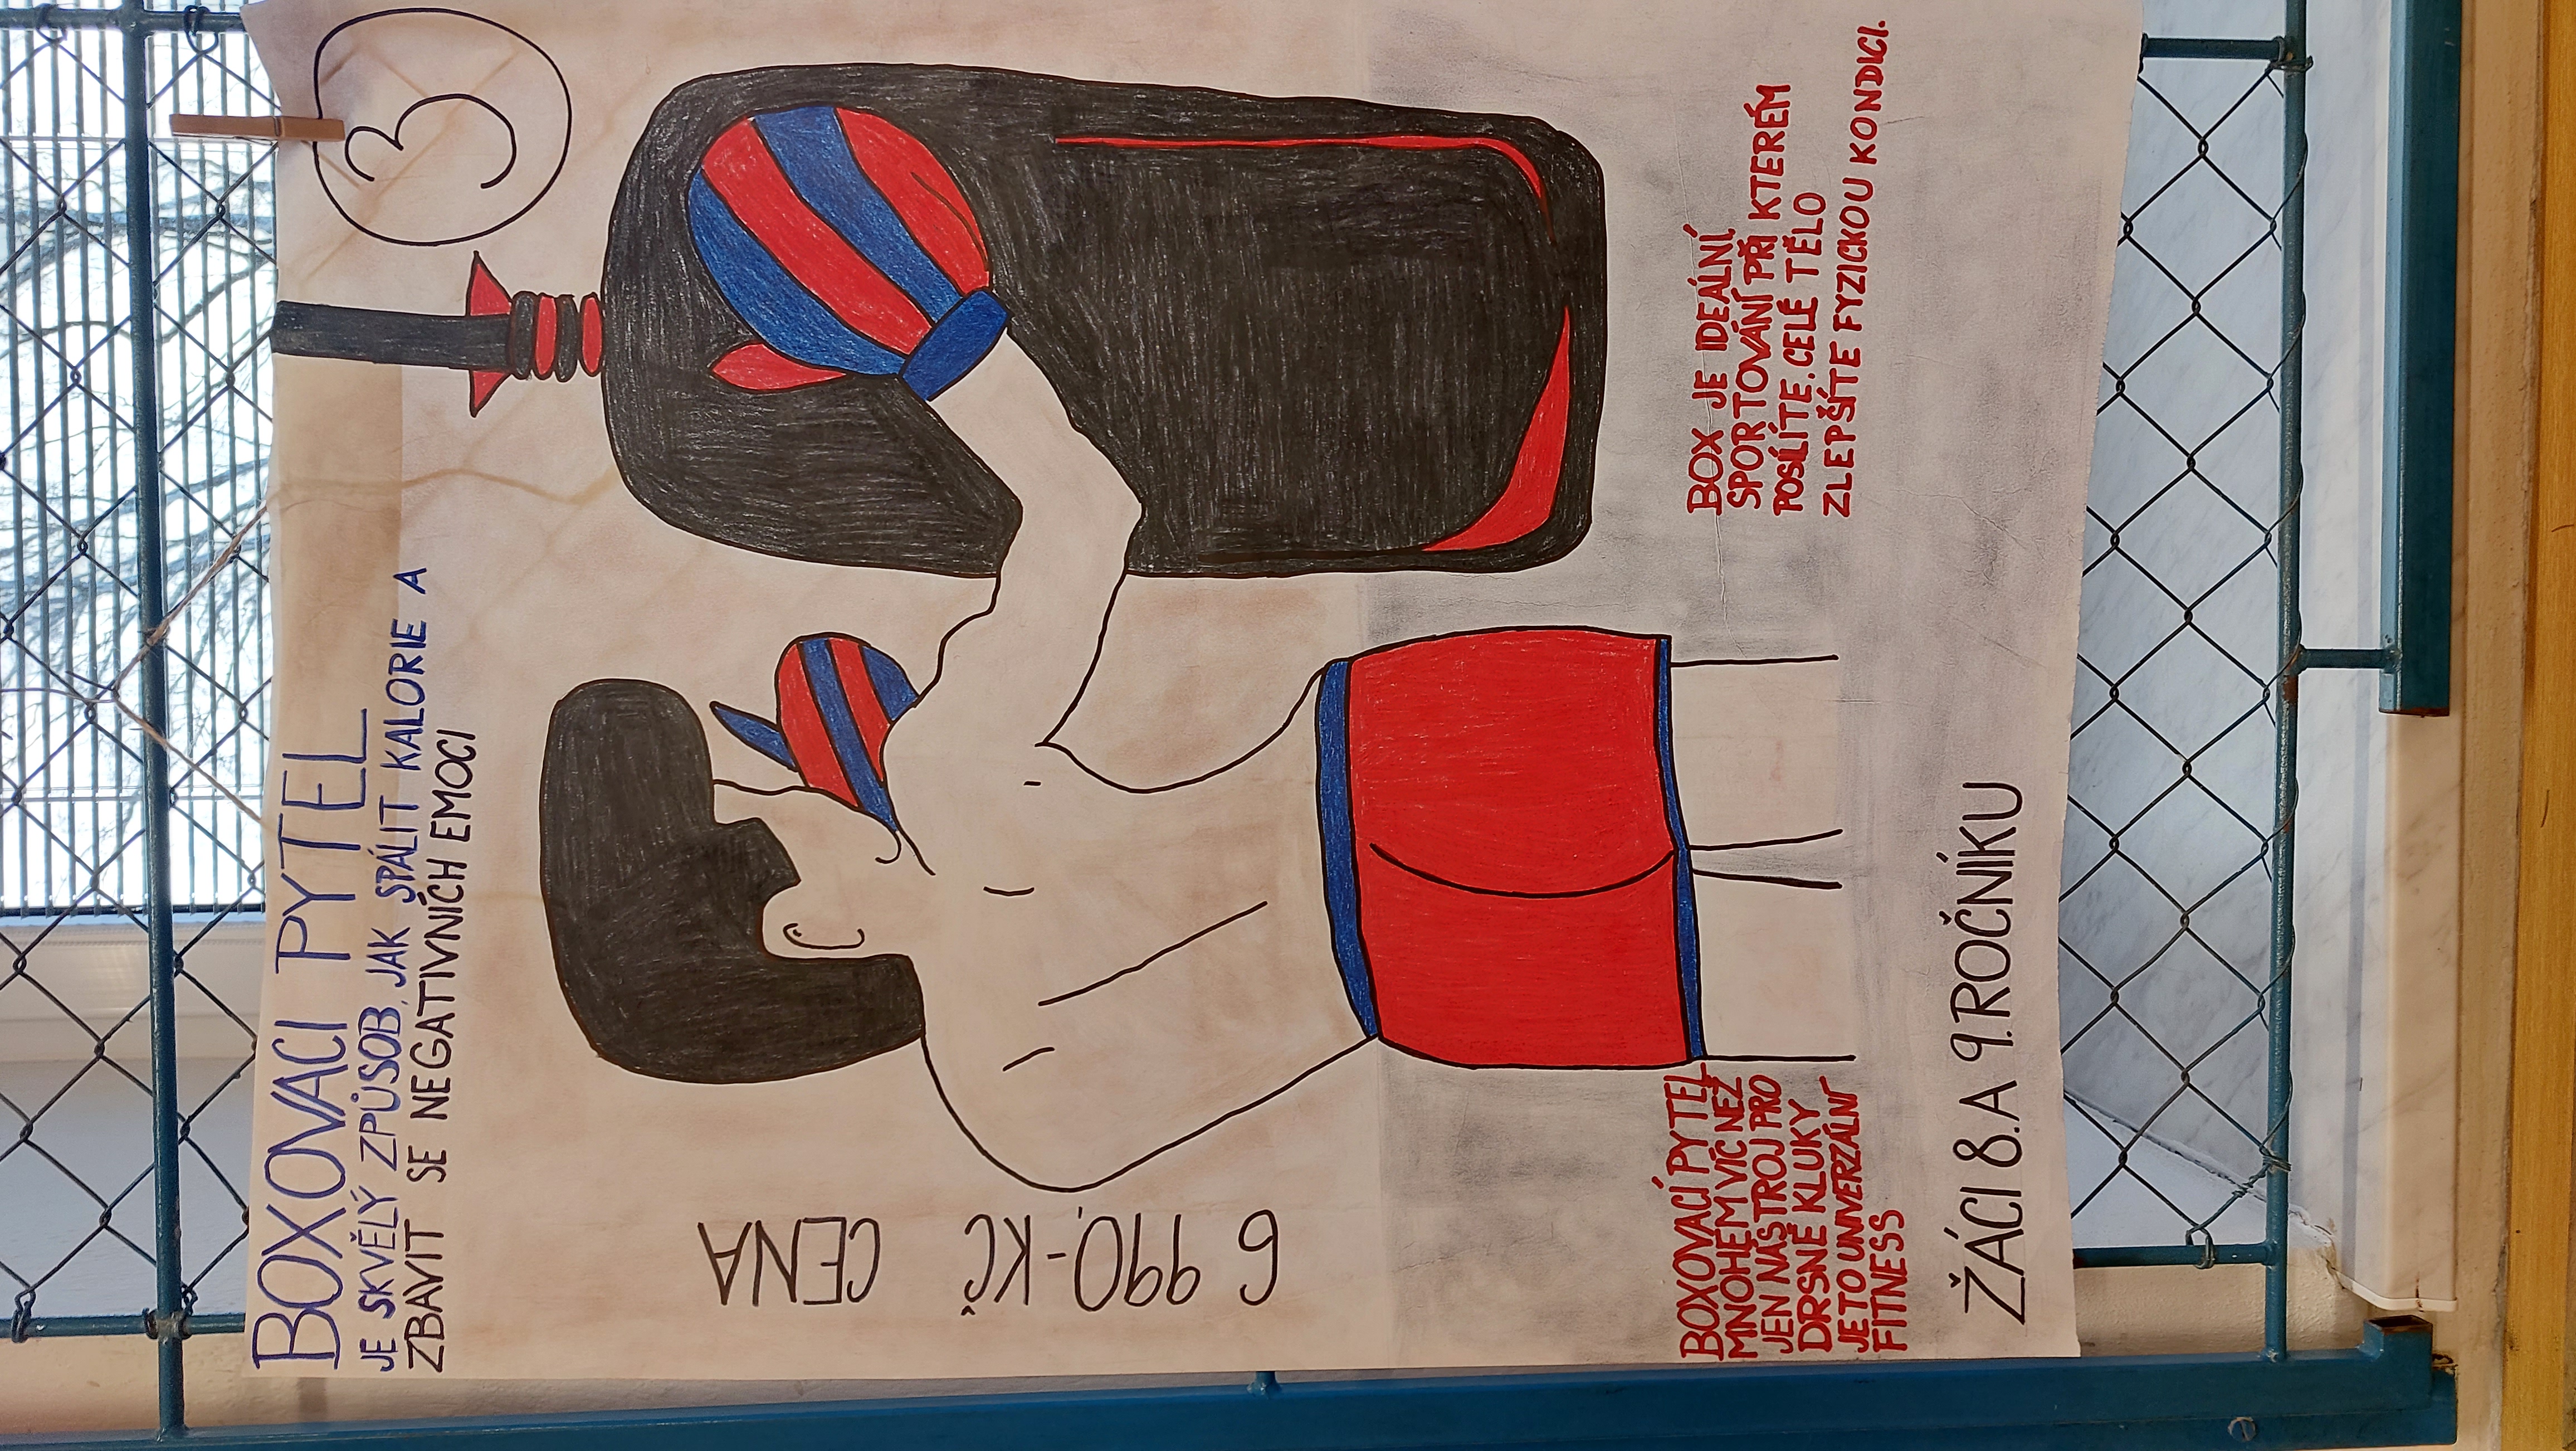 3
BOXOVACI PYTEL
JE SKVĚLÝ ZPŮSOB, JAK SPÁLIT KALORIE A
ZBAVIT SE NEGATIVNÍCH EMOCI
CENA
6 990,-KČ
BOXOVACÍ PYTEL
MNOHEM VÍC NEŽ
JEN NÁSTROJ PRO
DRSNÉ KLUKY
JE TO UNIVERZÁLNÍ
FITNESS
BOX JE IDEÁLNÍ
SPORTOVÁNÍ PŘI KTERÉM
POSÍLÍTE. CELÉ TĚLO
ZLEPŠÍTE FYZICKOU KONDICI.
ŽÁCI 8. A 9. ROČNÍKU